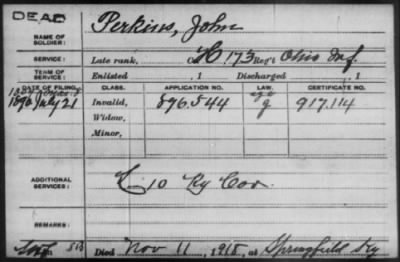 DEAD
NAME OF SOLDIER: Perkins, John
SERVICE: Late rank, H 173 Reg't Ohio Inf.
TERM OF SERVICE: Enlisted , 1 Discharged , 1
DATE OF FILING. CLASS. APPLICATION NO. LAW. CERTIFICATE NO.
1890 July 21 Invalid, 876.544 g 917.114
Widow,
Minor,
ADDITIONAL SERVICES: 10 Ky Cav.
REMARKS:
513 Died Nov 11, 1915, at Springfield Ky